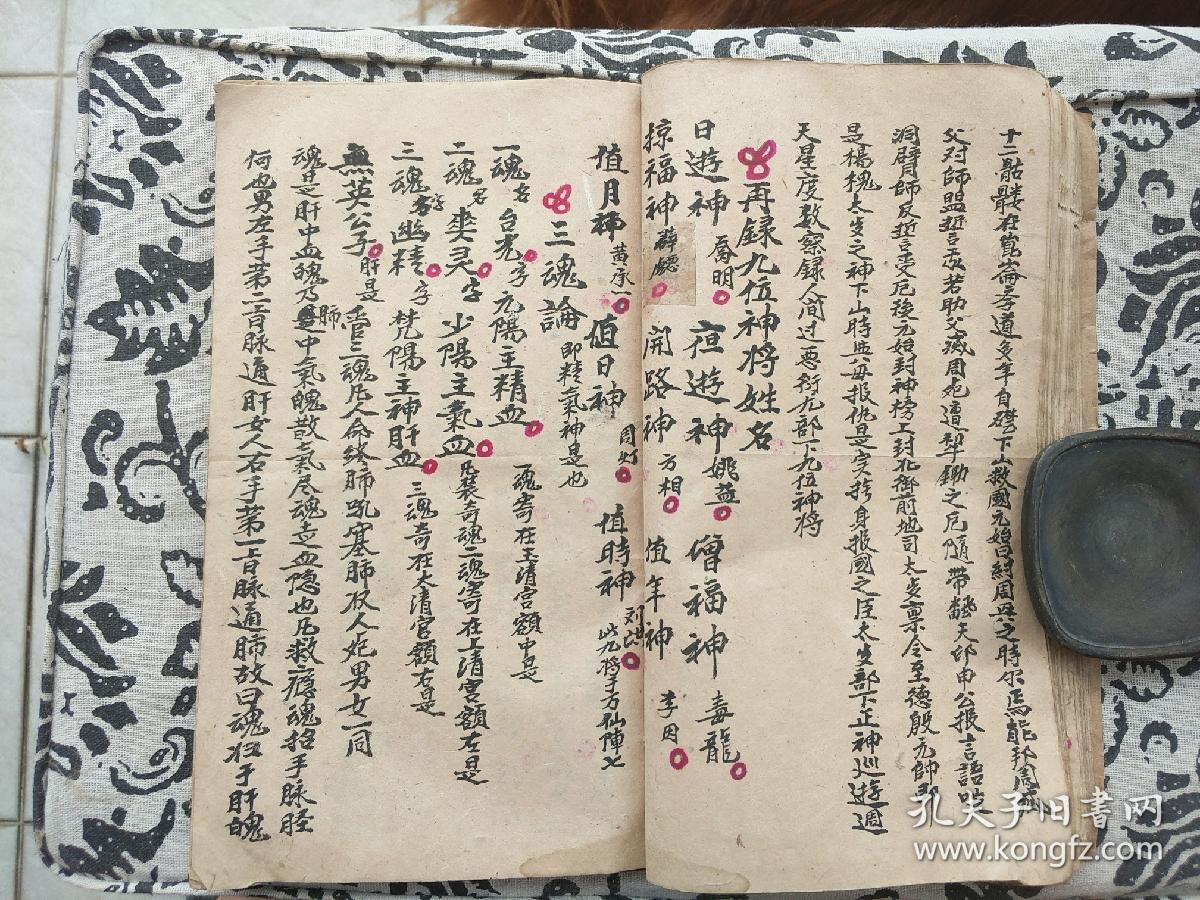 十二骷髏在崑崙客道多年自磋下山救國元始曰紂周興之時尔焉能邦周滅
父对師盟誓言永若助父滅周兇遭犁鋤之厄隨帶翻天邱申公报言語
洞辟師反誓言受厄後元始封神榜上封北御前地司太岁禀令至德殷元帥
是楊槐太岁之神下山時與母报仇是实捨身报國之臣太岁部下正神巡遊週
天星度数察録人间过恶衍九部下九位神将
再録九位神将姓名
日遊神 喬明 夜遊神 姚 增福神 毒龍
掠福神 薛 開路神 方相 值年神 李因
值月神 黄承一 值日神 周 值時神 刘洪 此九将万仙陣亡
三魂論 即精氣神是也
一魂名台光字元陽主精血 魂寄在玉清宮額中是
二魂名爽灵字少陽主氣血 寄魂二魂寄在上清宮額左是
三魂名幽精字梵陽主神肝血 三魂寄在太清宮額右是
無英公子肝是 三魂凡人命终肺吼塞肺 人 男女一同
魂是肝中血魄乃肺中氣魄散氣尽魂走血隐也凡救 魂拾手脉胵
何也男左手第二音脉通肝女人右手第一音脉通肺故曰魂 于肝魄
孔夫子旧書网
www.kongfz.com